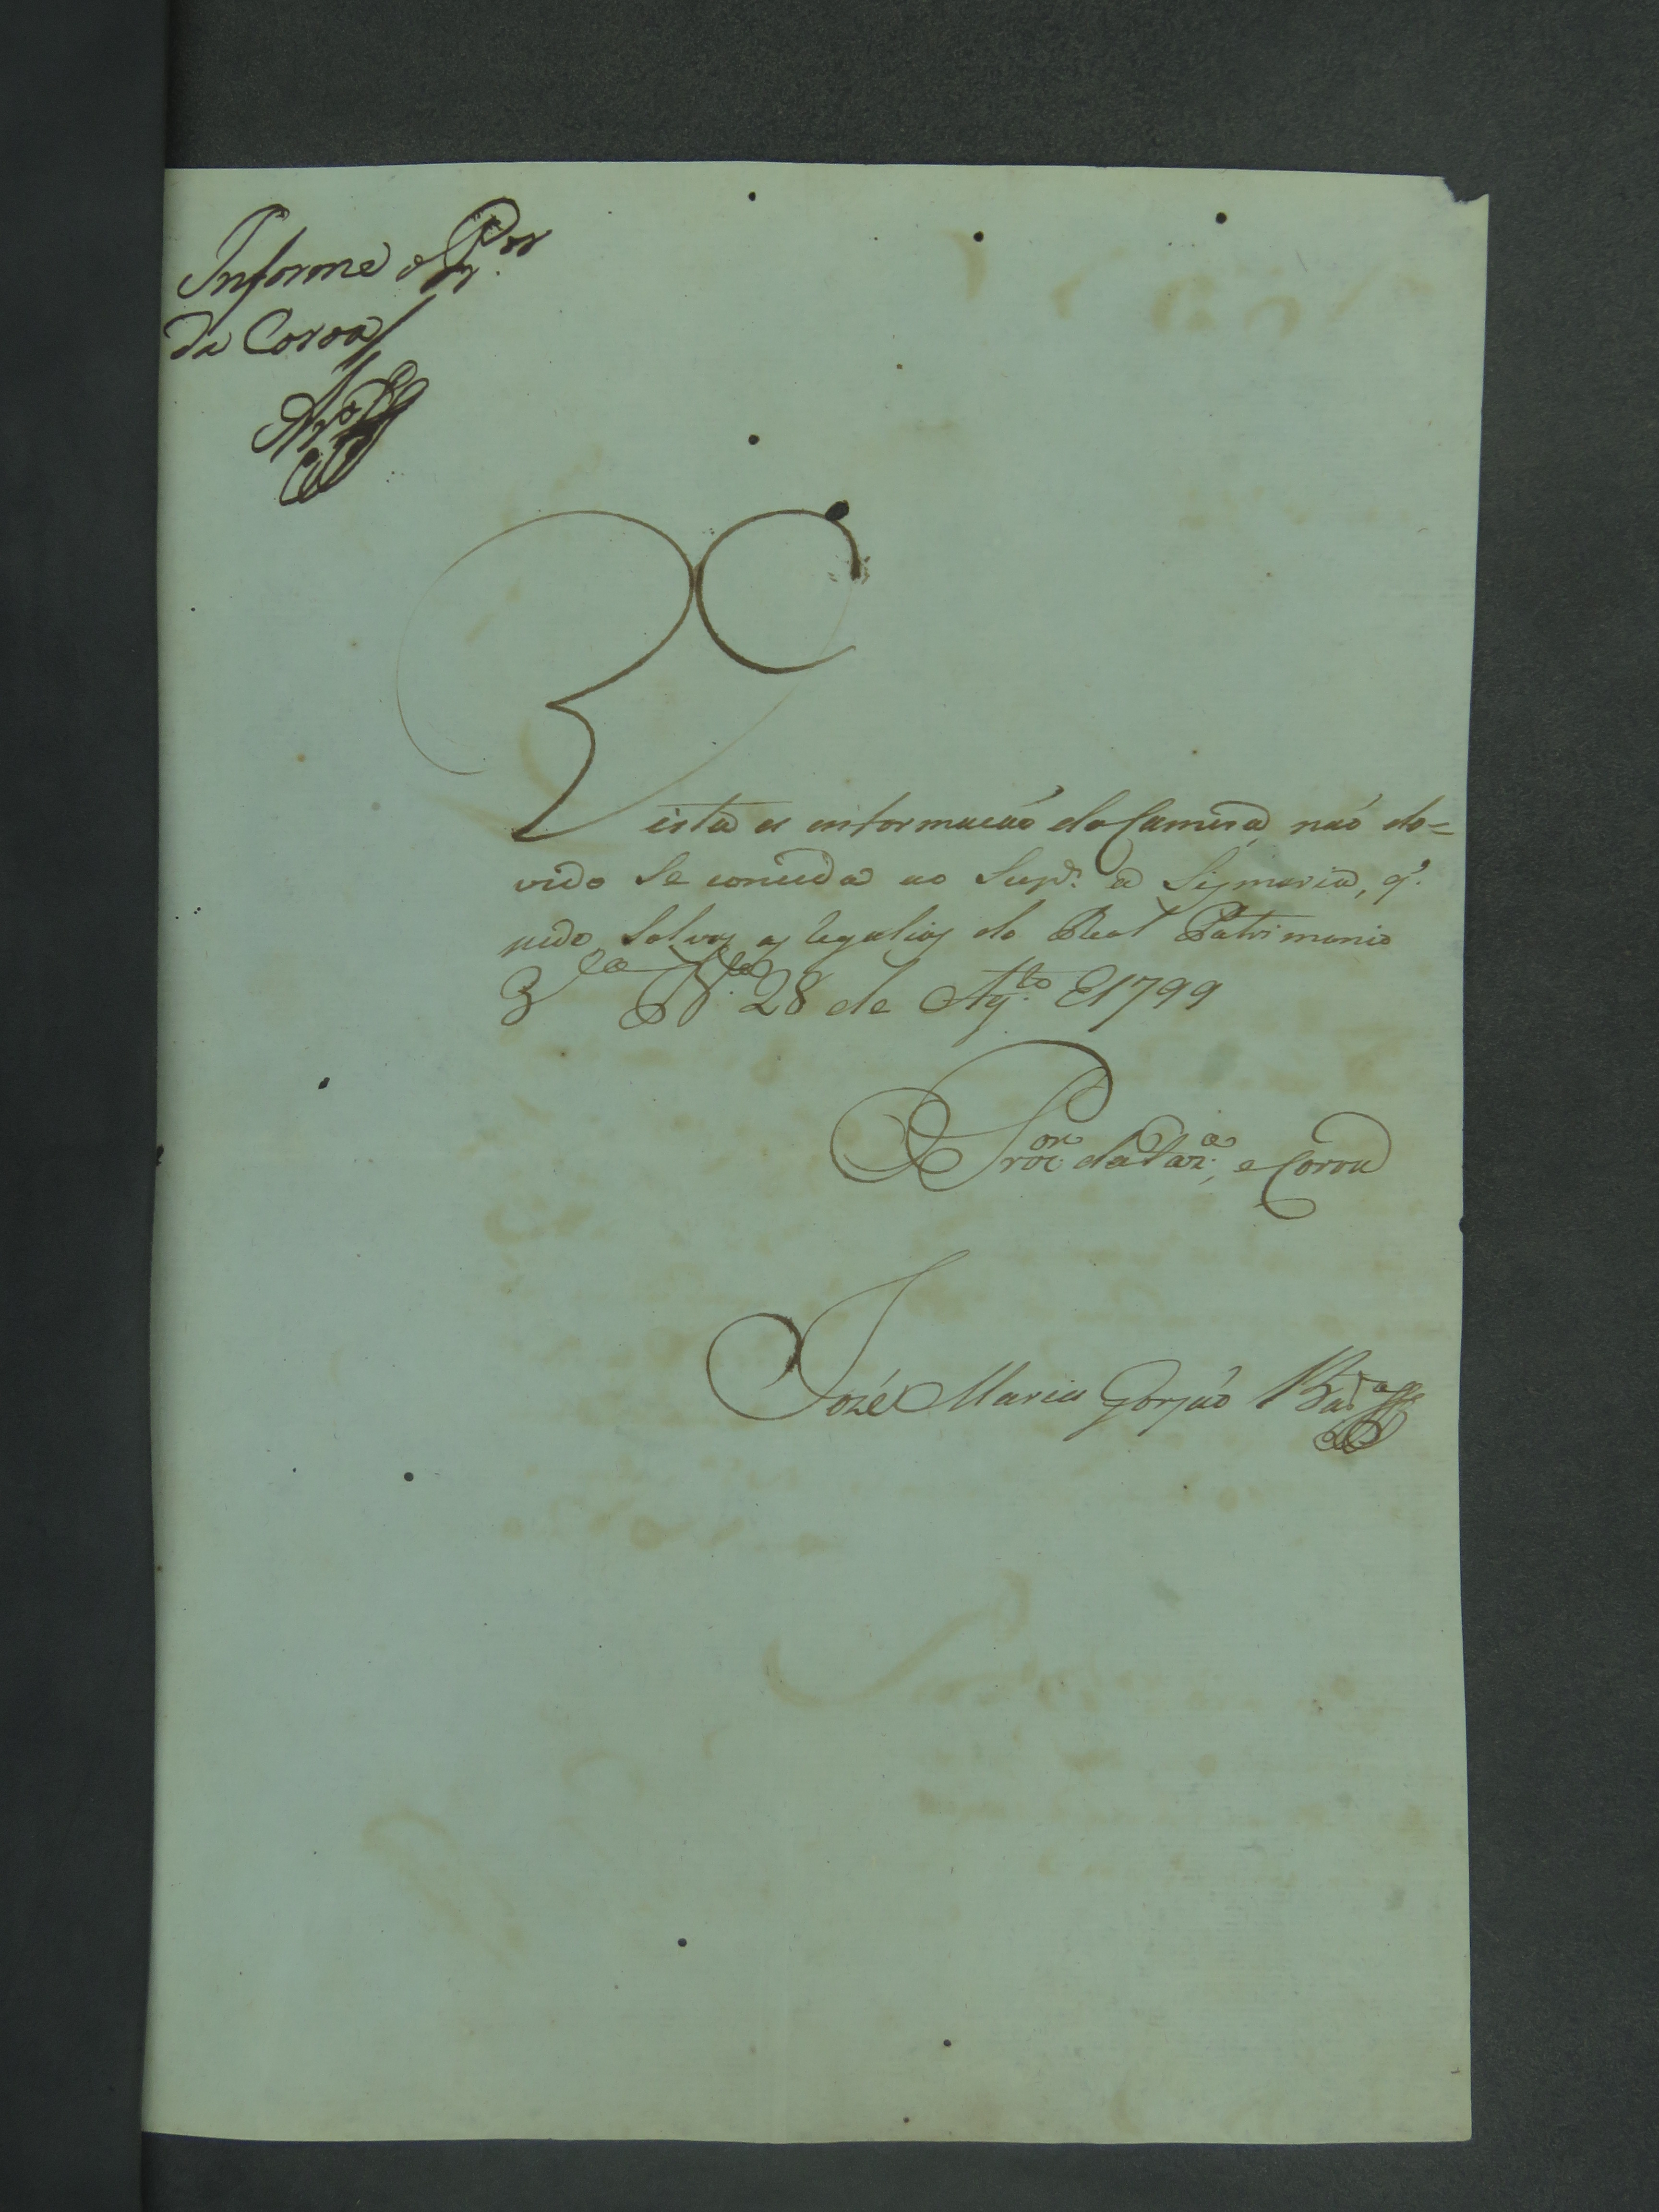 Informe o P.or
da Coroa
Vista a informacaó da Camera, naó do=
vido Se conceda ao Sup.e a Sismaria, q'.
pede, Salvas as regalias do Real Patrimonio
28 de Ag.to de 1799
O Proc.or da Faz.a, e Coroa
Jozé Maria Gorjaó